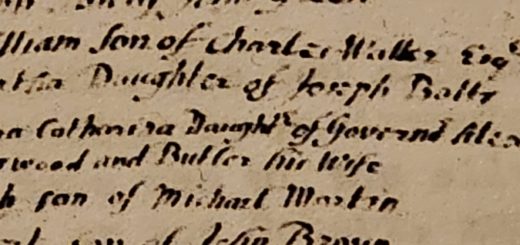 lliam Son of Charles Walker Esqr
atha Daughter of Joseph Batts
na Catharina Daughtr of Governr Alex
rwood and Butler his Wife
h son of Michael Martin
son of John Brown